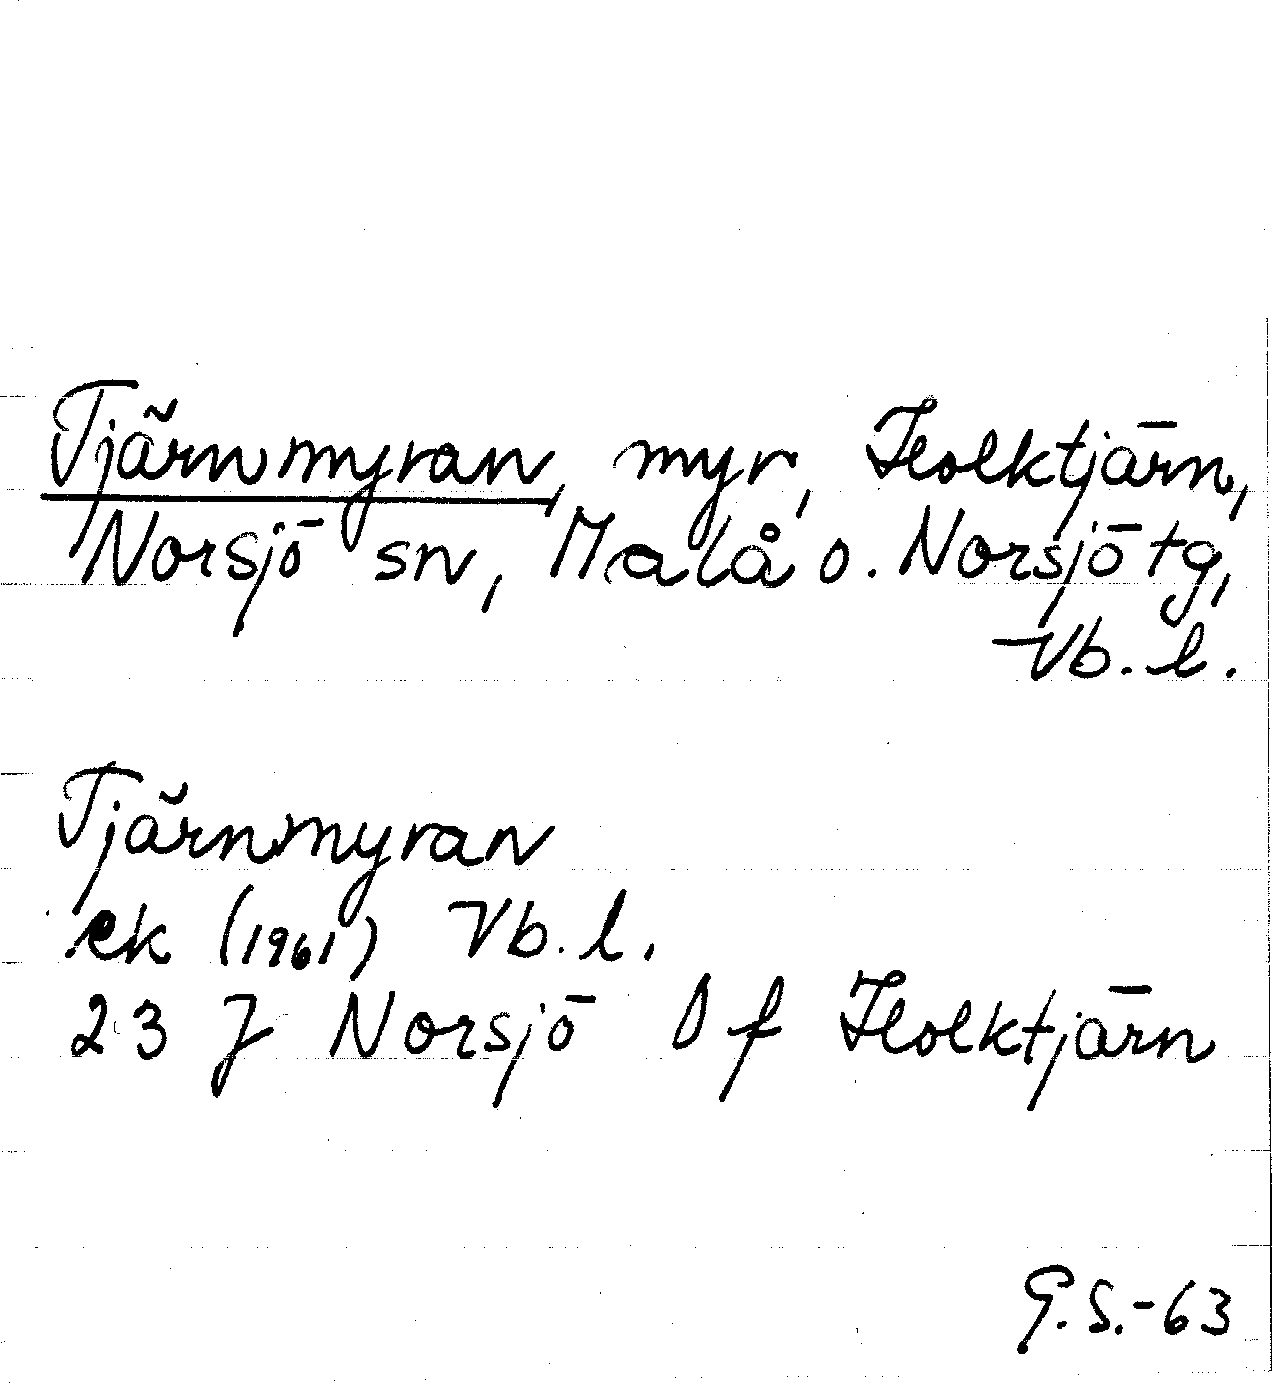 Tjärnmyran, myr, Holktjärn,
Norsjö sn, Malå o. Norsjö tg,
Vb. l.
Tjärnmyran
ek (1961) Vb. l.
23 J Norsjö Of Holktjärn
G.S.-63